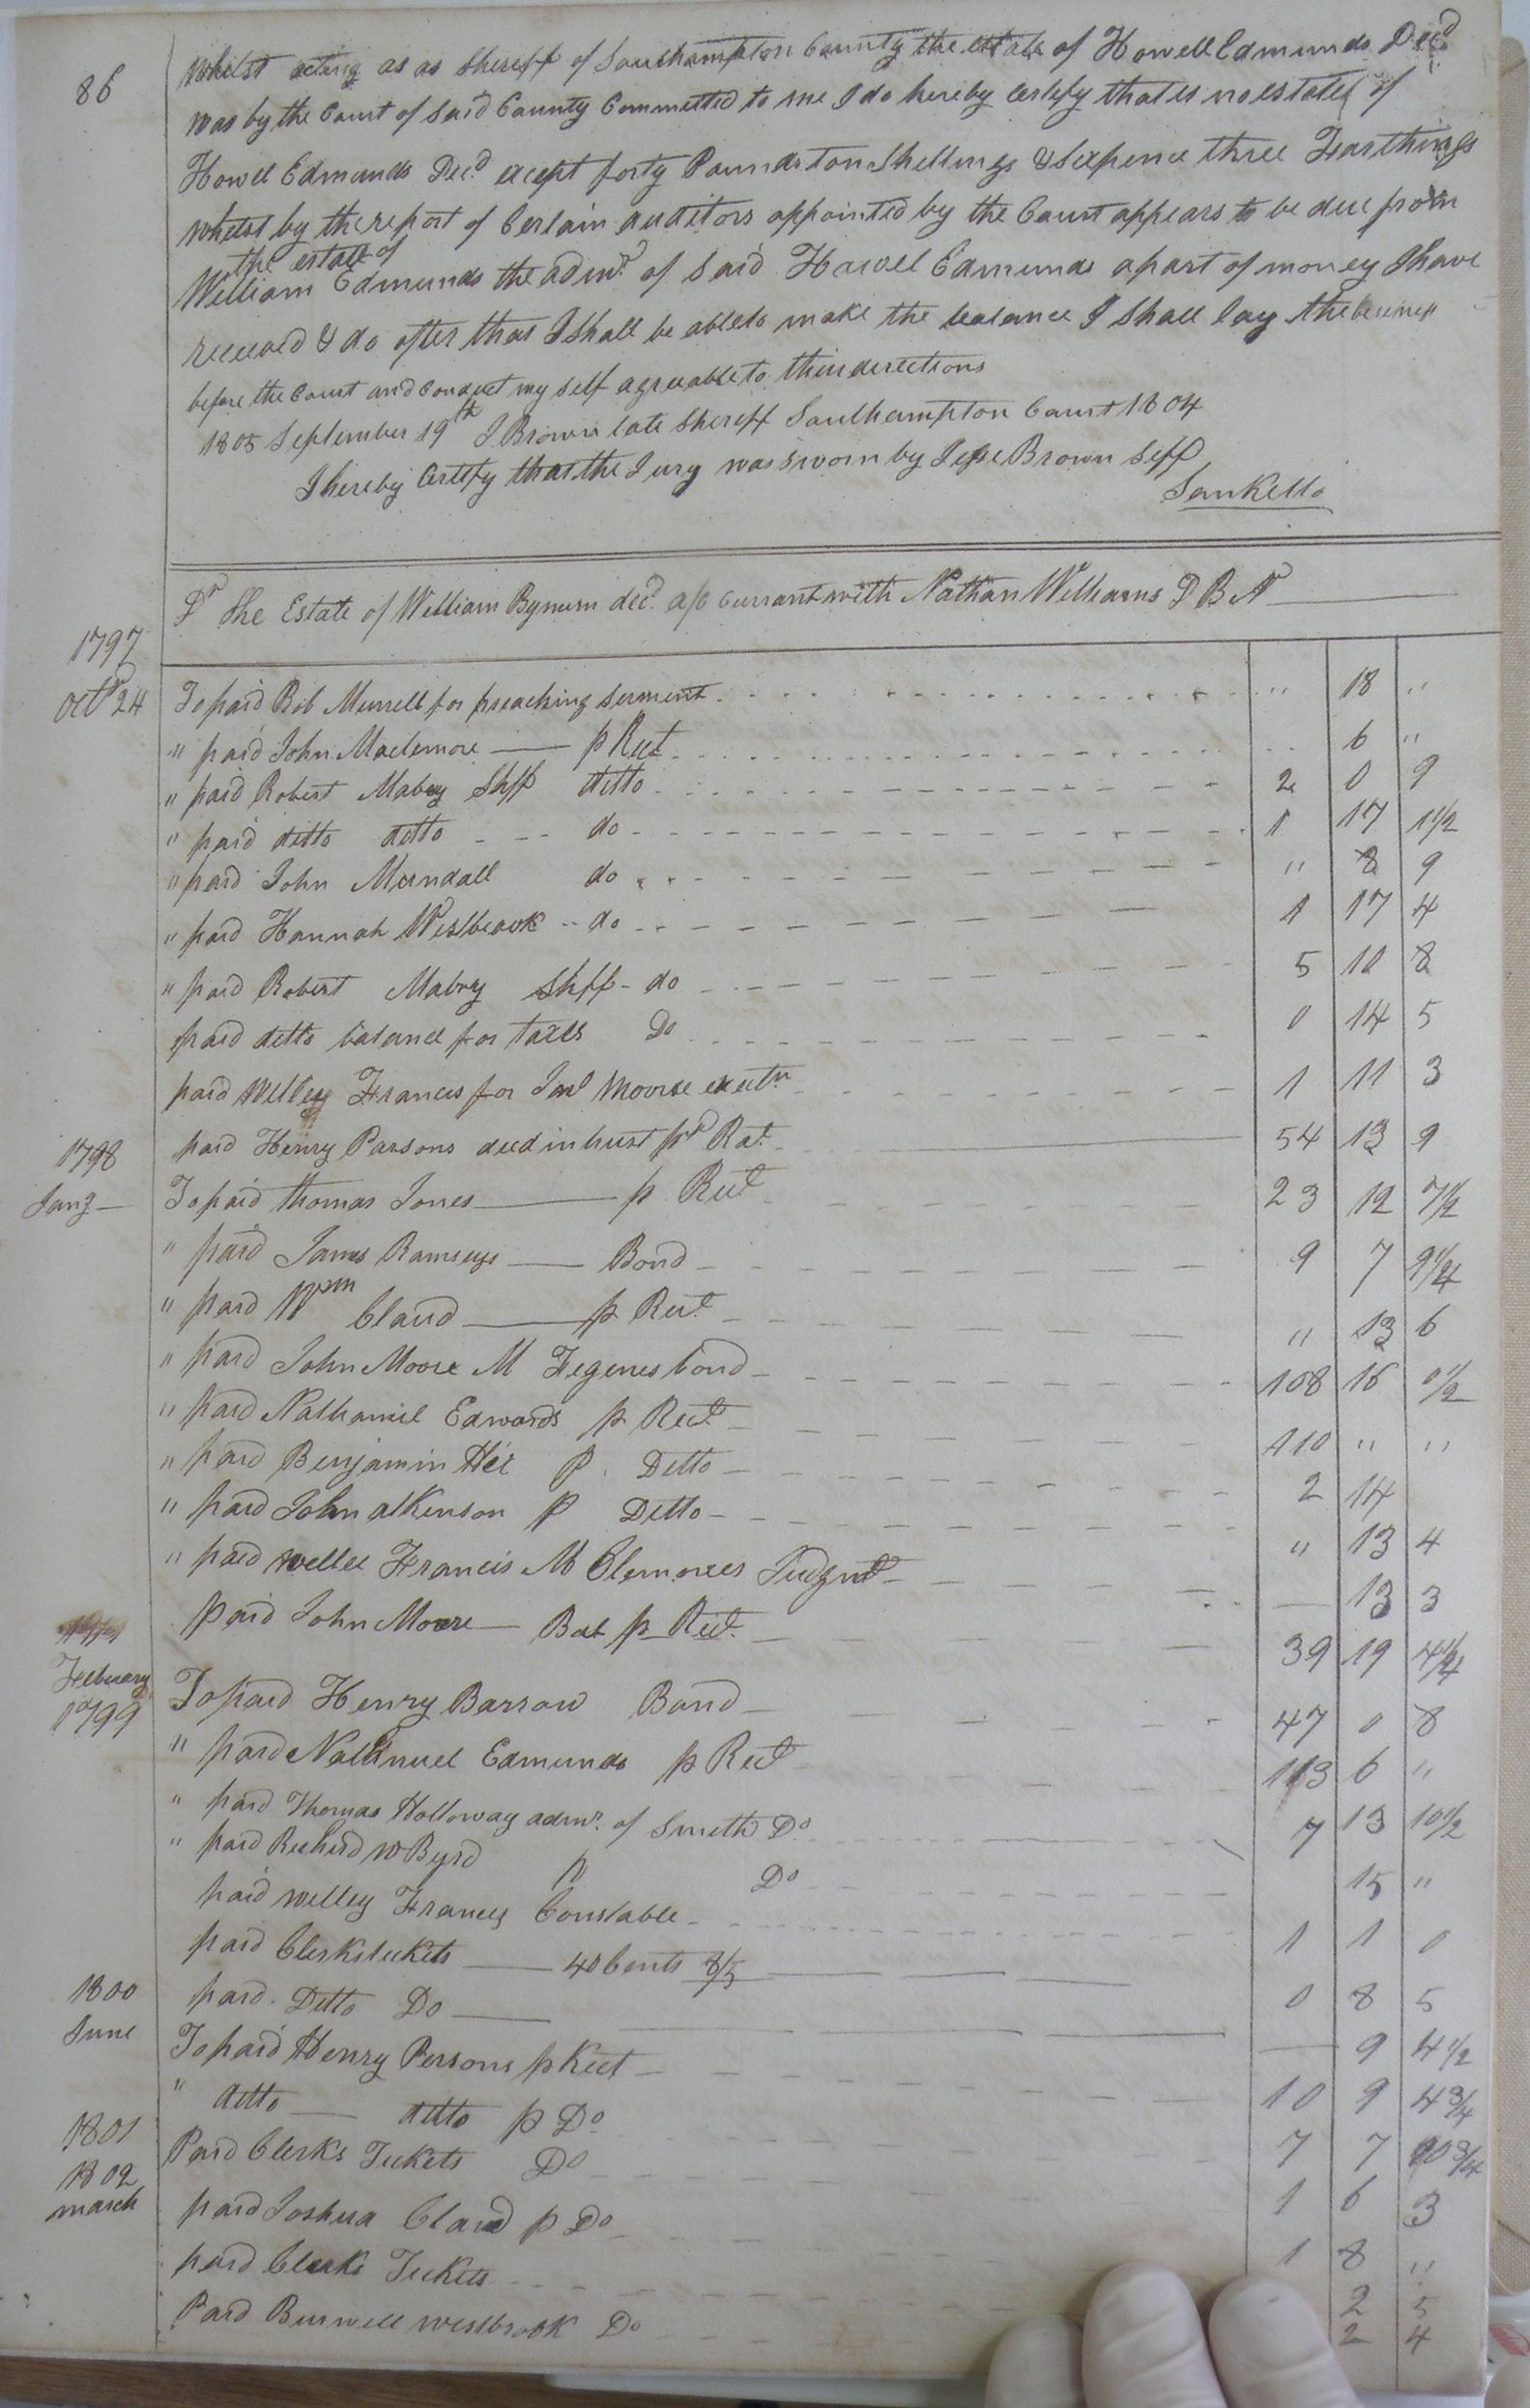 86
Whilst acting as as Shereff of Southampton County the estate of Howell Edmunds Decd
was by the Court of Said County Committed to me I do hereby Certify that is no estate of
Howell Edmunds Decd except forty Pounds ton Shellings & Sixpence three Farthings
whilst by the report of Certain auditors appointed by the Court appears to be due from
the estate of
William Edmunds the admr of Said Howell Edmunds a part of money I have
received & do after that I shall be able to make the balance I shall lay the
before the Court and Conduct my self agreeable to their derections
1805 September 19th J. Brown late Shereff Southampton Court 1804
I hereby Certify that the Jury was sworn by Jesse Brown Seff
Saml Kello
Dr The Estate of William Bynum decd a/c Currant with Nathan Williams D B N
1797
Octr 24 To paid Rob Murrell for preaching serment " 18 "
" paid John Maclemore p Rect 6 "
" paid Robert Mabry Shff ditto 2 0 9
" paid ditto ditto do 1 17 1 1/2
" paid John Mundall do " 8 9
" paid Hannah Westbrook do 1 17 4
" paid Robert Mabry Shff do 5 10 8
paid ditto balance for taxes Do 0 14 5
paid Willey Francis for Moore 1 11 3
paid Henry Parsons deed in trust pr Rat 54 13 9
1798
Jany To paid Thomas Jones p Rect 23 12 7 1/2
" paid James Ramseys Bond 9 7 9 1/4
" paid Wm Claud p Rect " 13 6
" paid John Moore M Fegenes bond 108 16 0 1/2
" paid Nathaniel Edwards p Rect 110 " "
" paid Benjamin P Ditto 2 14
" paid John Atkinson P Ditto " 13 4
" paid Willie Francis M Clemores Judgmt 13 3
paid John Moore Bal p Rect 39 19 4 1/4
Feberary
1799 To paid Henry Barrow Bond 47 0 8
" paid Nathanuel Edmunds p Rect 113 6 "
" paid Thomas Holloway admr of Smith Do 7 13 10 1/2
" paid Richerd W Byrd p Do 15 "
paid Willey Francis Constable 1 1 0
paid Clerks tickets 40 Cents 8/5 0 8 5
paid Ditto Do 9 4 1/2
1800
June To paid Henry Persons p Rect 10 9 4 3/4
" ditto ditto p Do 7 7 10 3/4
1801 Paid Clerks Tickets Do 1 6 3
1802
march paid Joshua Claud p Do 1 8 "
paid Clerks Tickets 2 5
Paid Burwell Westbrook Do 2 4